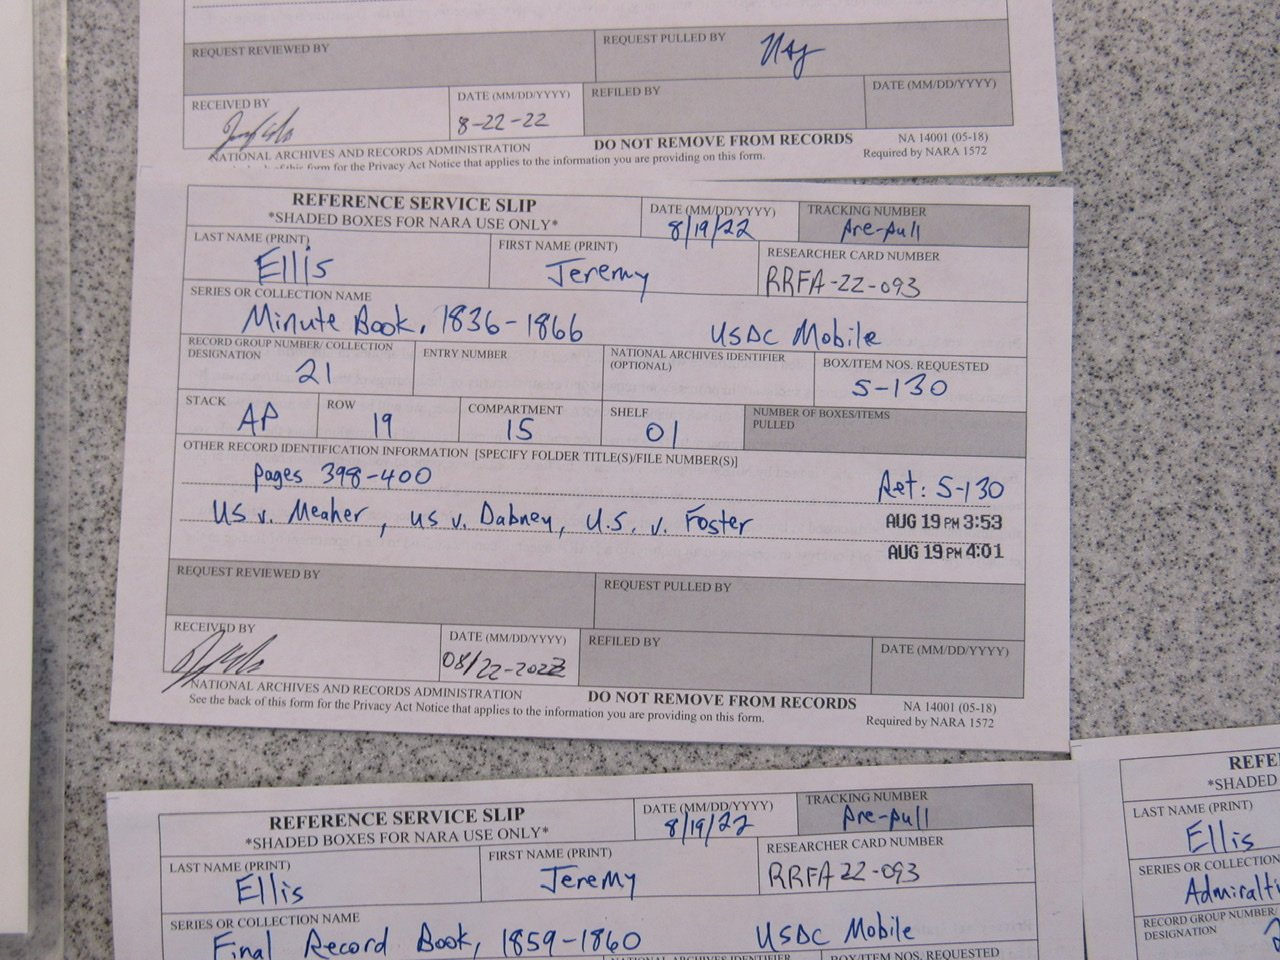 REQUEST REVIEWED BY
REQUEST PULLED BY
RECEIVED BY
DATE (MM/DD/YYYY)
8-22-22
REFILED BY
DATE (MM/DD/YYYY)
NATIONAL ARCHIVES AND RECORDS ADMINISTRATION
DO NOT REMOVE FROM RECORDS
NA 14001 (05-18)
of this form for the Privacy Act Notice that applies to the information you are providing on this form.
Required by NARA 1572
REFERENCE SERVICE SLIP
*SHADED BOXES FOR NARA USE ONLY*
DATE (MM/DD/YYYY)
8/19/22
TRACKING NUMBER
Pre-pull
LAST NAME (PRINT)
Ellis
FIRST NAME (PRINT)
Jeremy
RESEARCHER CARD NUMBER
RRFA-22-093
SERIES OR COLLECTION NAME
Minute Book, 1836-1866 USDC Mobile
RECORD GROUP NUMBER/ COLLECTION
DESIGNATION
21
ENTRY NUMBER
NATIONAL ARCHIVES IDENTIFIER
(OPTIONAL)
BOX/ITEM NOS. REQUESTED
5-130
STACK
AP
ROW
19
COMPARTMENT
15
SHELF
01
NUMBER OF BOXES/ITEMS
PULLED
OTHER RECORD IDENTIFICATION INFORMATION [SPECIFY FOLDER TITLE(S)/FILE NUMBER(S)]
pages 398-400
Ret: 5-130
US v. Meaher, US v. Dabney, U.S. v. Foster
AUG 19 PM 3:53
AUG 19 PM 4:01
REQUEST REVIEWED BY
REQUEST PULLED BY
RECEIVED BY
DATE (MM/DD/YYYY)
08/22-2022
REFILED BY
DATE (MM/DD/YYYY)
NATIONAL ARCHIVES AND RECORDS ADMINISTRATION
DO NOT REMOVE FROM RECORDS
NA 14001 (05-18)
See the back of this form for the Privacy Act Notice that applies to the information you are providing on this form.
Required by NARA 1572
REFERENCE SERVICE SLIP
*SHADED BOXES FOR NARA USE ONLY*
DATE (MM/DD/YYYY)
8/19/22
TRACKING NUMBER
Pre-pull
LAST NAME (PRINT)
Ellis
FIRST NAME (PRINT)
Jeremy
RESEARCHER CARD NUMBER
RRFA 22-093
SERIES OR COLLECTION NAME
Final Record Book, 1859-1860 USDC Mobile
NATIONAL ARCHIVES IDENTIFIER
BOX/ITEM NOS. REQUESTED
REFE
*SHADED
LAST NAME (PRINT)
Ellis
SERIES OR COLLECTION
Admiralt
RECORD GROUP NUMBER/
DESIGNATION